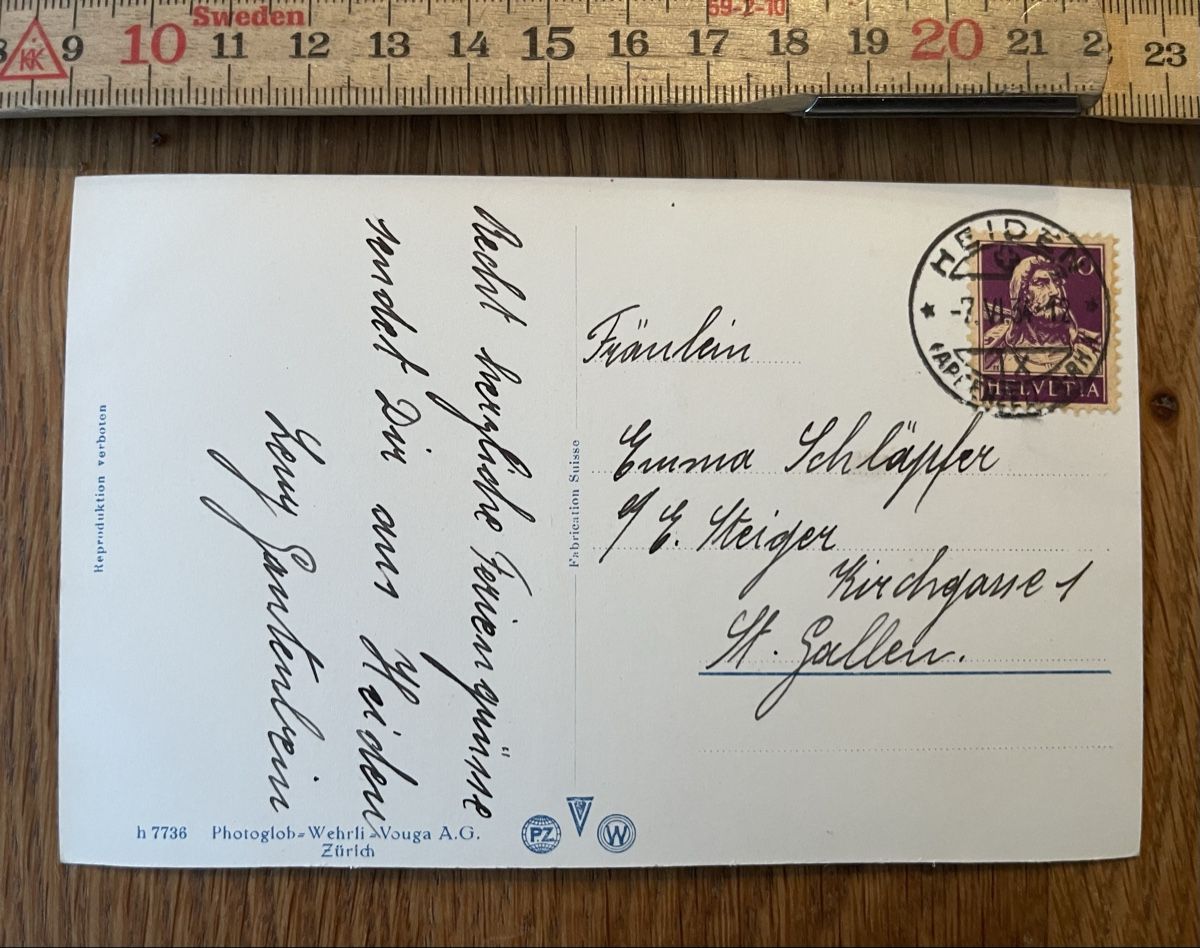 8 9 10 11 12 13 14 15 16 17 18 19 20 21 2 23
Sweden
59-2-10
KK
HEIDEN
-7.VI.34-12
HELVETIA
10
Recht herzliche Feriengrüsse
sendet Dir aus Heiden
Gantenbein
Fräulein
Emma Schläpfer
c/ E. Steiger
Kirchgasse 1
St. Gallen.
Reproduktion verboten
Fabrication Suisse
h 7736 Photoglob=Wehrli=Vouga A.G.
Zürich
PZ V W